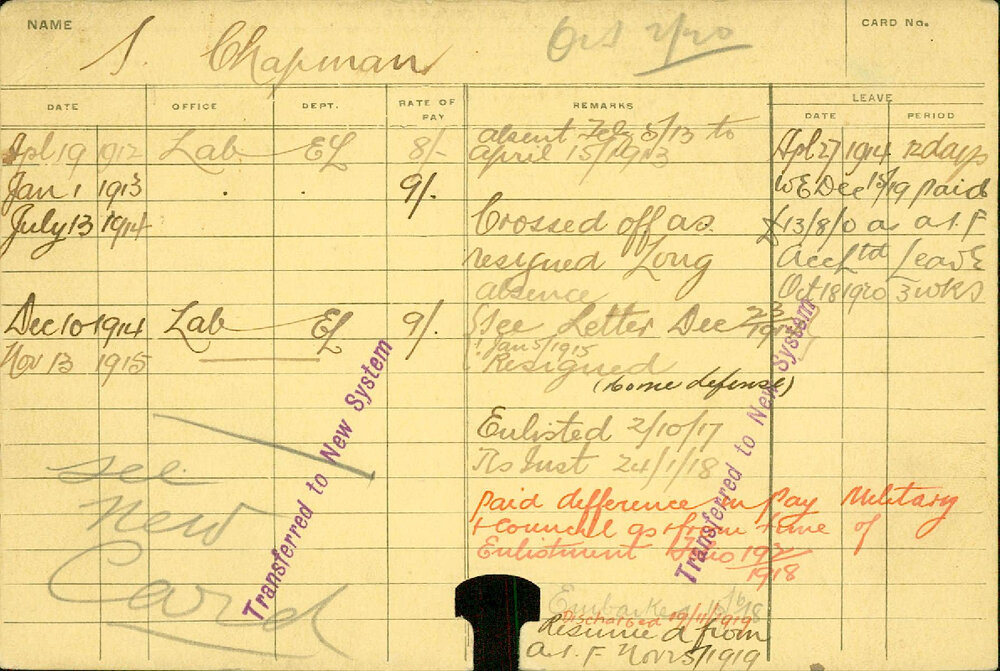 NAME
CARD No.
S. Chapman
2/20
DATE OFFICE DEPT. RATE OF PAY REMARKS LEAVE
DATE PERIOD
Apl 19 1912 Lab EL 8/- absent Feb 5/13 to
April 15/1913
Apl 27 1914 12 days
Jan 1 1913 . . 9/.
WE Dec 19 paid
July 13 1914 Crossed off as
£13/8/0 a A.I.F
resigned Long
Acc Ltd Leave
absence
Oct 18 1920 3 wks
Dec 10 1914 Lab EL 9/. See Letter Dec 23
Jan 5/1915
Nov 13 1915 Resigned
(home defense)
Enlisted 2/10/17
24/1/18
paid difference in Pay Military
+ Council as from time of
Enlistment
1918
Embarked
Discharged 19/11/1919
Resumed from
A.I.F Nov 25/1919
see
New
Card
Transferred to New System
Transferred to New System